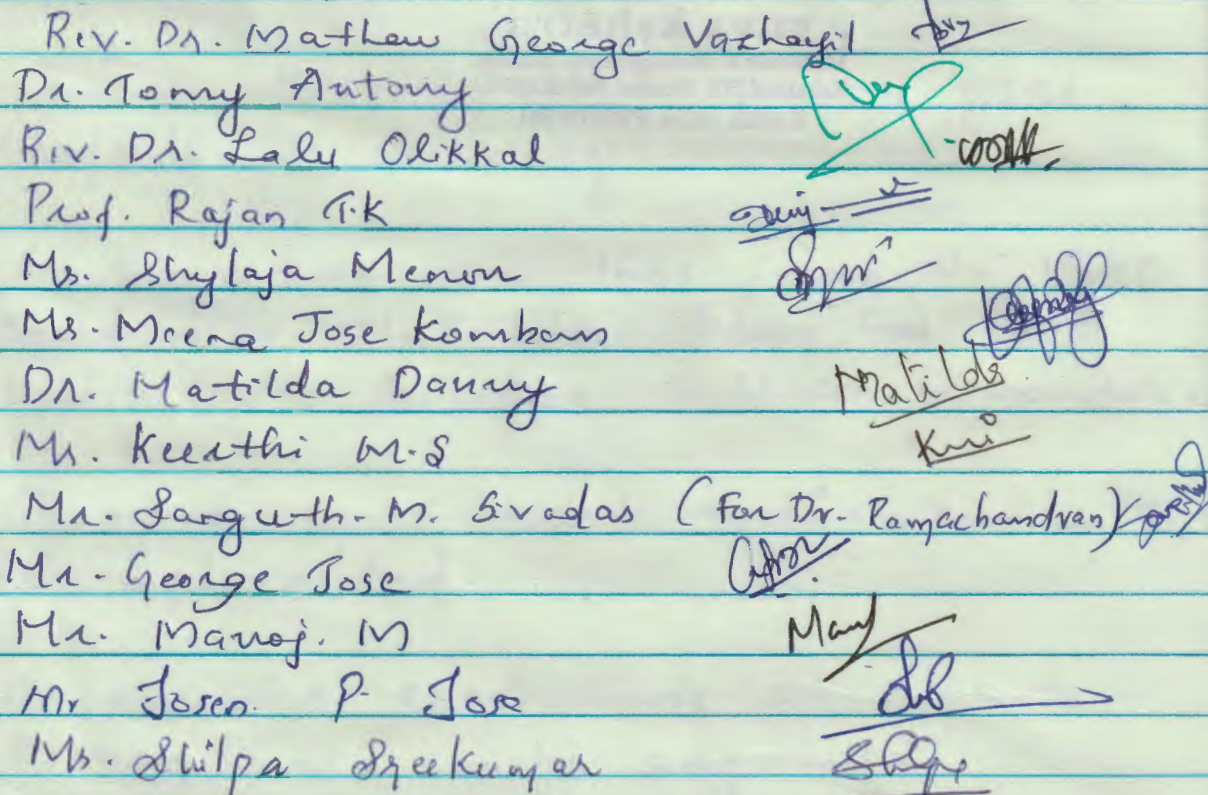 Rev. Dr. Mathew George Vazhayil
Dr. Tomy Antony
Rev. Dr. Lalu Olikkal
Prof. Rajan T.K
Ms. Shylaja Menon
Ms. Meena Jose Komban
Dr. Matilda Danny Matilda
Ms. Keerthi M.S
Mr. M. Sivadas (For Dr. Ramachandran)
Mr. George Jose
Mr. Manoj. M
Mr Josen P Jose
Ms. Shilpa Sreekumar